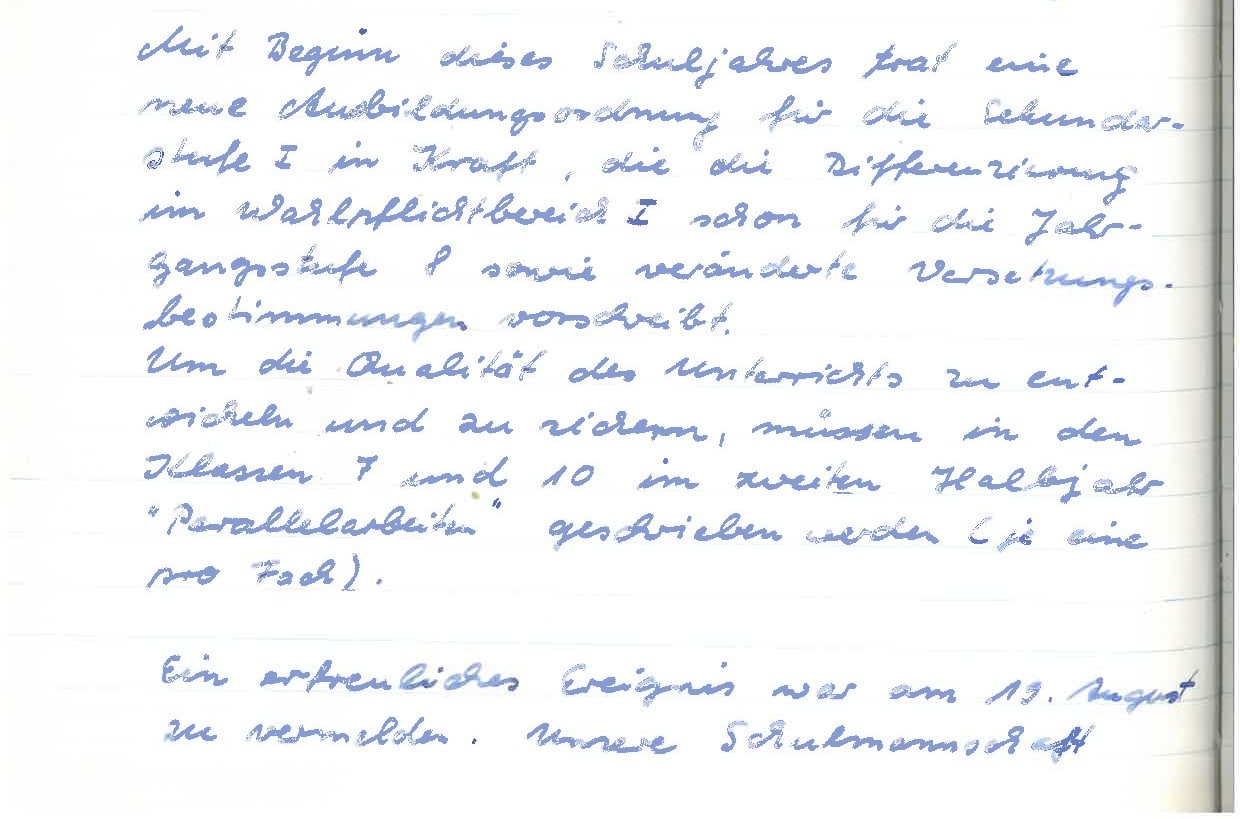 Mit Beginn dieses Schuljahres trat eine
neue Ausbildungsordnung für die Sekundar-
stufe I in Kraft, die die Differenzierung
im Wahlpflichtbereich I schon für die Jahr-
gangsstufe 8 sowie veränderte Versetzungs-
bestimmungen vorschreibt.
Um die Qualität des Unterrichts zu ent-
wickeln und zu sichern, müssen in den
Klassen 7 und 10 im zweiten Halbjahr
"Parallelarbeiten" geschrieben werden (je eine
pro Fach).
Ein erfreuliches Ereignis war am 19. August
zu vermelden. Unsere Schulmannschaft